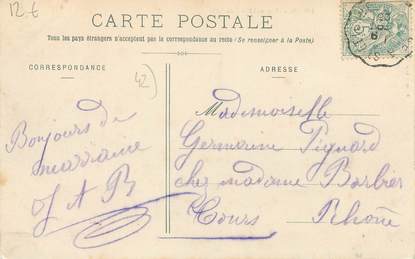 12 €
CARTE POSTALE
Tous les pays étrangers n'acceptent pas la correspondance au recto (Se renseigner à la Poste).
CORRESPONDANCE
ADRESSE
42
Bonjours de
marraine
J A B
Mademoiselle
Germaine Pignard
chez madame Barbier
Cours Rhône